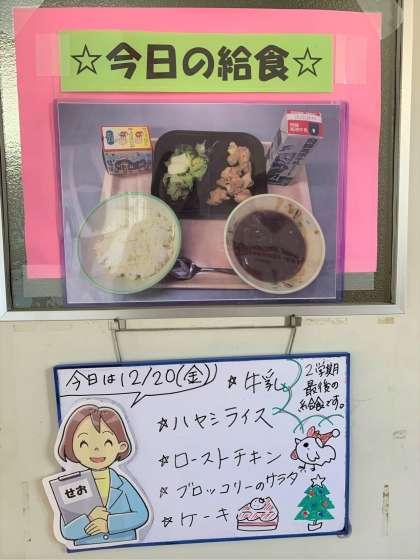 ☆今日の給食☆
今日は12/20(金)
☆牛乳
☆ハヤシライス
☆ローストチキン
☆ブロッコリーのサラダ
☆ケーキ
2学期
最後の
給食です。
せお